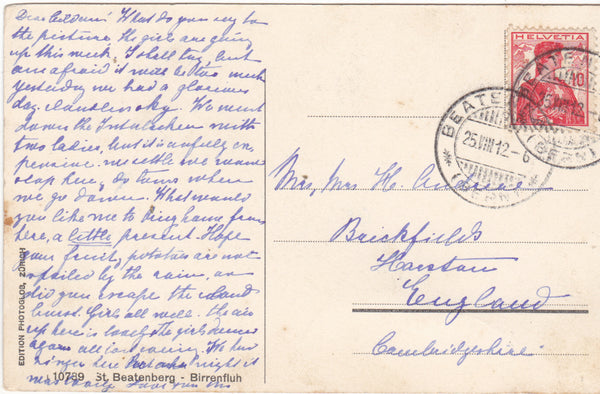 What do you say to
the picture the girls are going
up this week I shall try, but
am afraid it will be too much
yesterday we had a glorious
day. cloudless sky. We went
down the Interlachen with
two ladies, but it is awfully ex-
pensive. we we cannot
here,
we go down. What would
you like me to bring home from
here, a little present. Hope
your fruit, potatoes are not
spoiled by the rain, or
did you escape the cloud
burst. Girls all well. The air
up here is lovely the girls
again all last night it
was lovely
EDITION PHOTOGLOB, ZÜRICH
10789 St. Beatenberg - Birrenfluh
HELVETIA
BEATENBERG
25.VIII.12-6
(BERN)
Mr, Mrs H.
Brickfields
Harston
England
Cambridgeshire